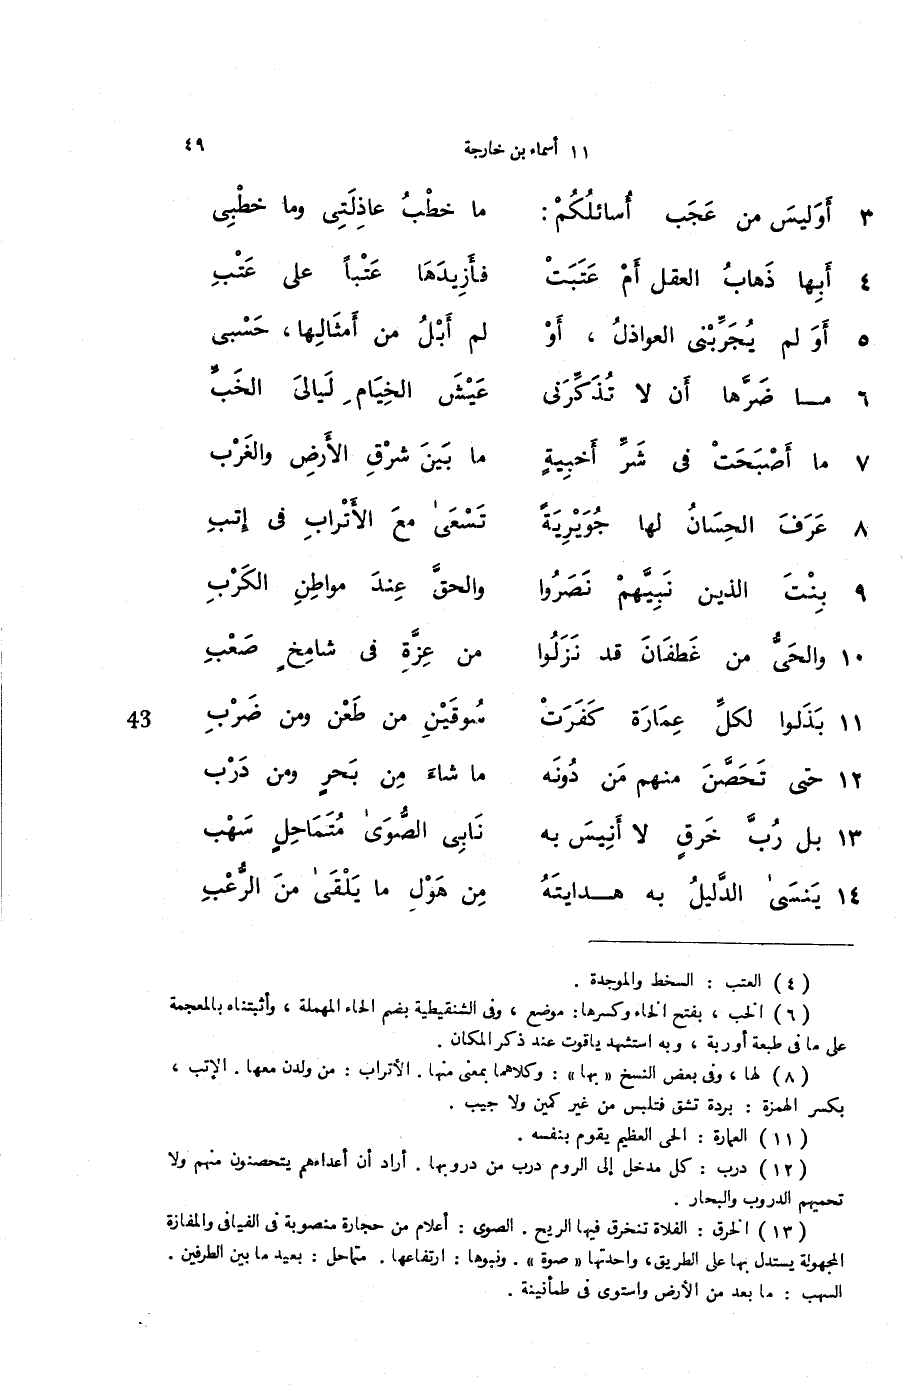 ١١ أسماء بن خارجة ٤٩
٣ أَوَليسَ من عَجَب أُسائلُكُمْ: ما خطْبُ عاذِلَتِى وما خطْبِى
٤ أَبِها ذَهابُ العقل أمْ عَتَبَتْ فأَزِيدَهَا عَتْباً على عَتْبِ
٥ أوَ لم يُجَرِّبْنى العواذلُ ، أوْ لم أَبْلُ من أمثَالِها ، حَسْبى
٦ مــا ضَرَّها أن لا تُذَكِّرَنى عَيْشَ الخِيَامِ لَيالىَ الخَبِّ
٧ ما أَصْبَحَتْ فى شَرِّ أَخبِيةٍ ما بَينَ شرْقِ الأَرضِ والغَرْبِ
٨ عَرَفَ الحِسَانُ لها جُوَيْرِيَةً تَسْعَىٰ معَ الأَتْرابِ فى إتبِ
٩ بِنْتَ الذين نَبِيَّهمْ نَصَرُوا والحقَّ عِندَ مواطِنِ الكَرْبِ
١٠ والحَىُّ من غَطفَانَ قد نَزَلُوا من عِزَّةٍ فى شامِخٍ صَعْبِ
١١ بَذَلوا لكلِّ عِمَارَة كَفَرَتْ سُوقَيْنِ من طَعْن ومن ضَرْبِ 43
١٢ حتى تَحَصَّنَ منهم مَن دُونَه ما شاءَ مِن بَحرٍ ومن دَرْب
١٣ بل رُبَّ خَرقٍ لا أَنِيسَ به نَابِى الصُّوَىٰ مُتَمَاحِلٍ سَهْب
١٤ يَنسَىٰ الدَّليلُ به هــدايتَهُ مِن هَوْلِ ما يَلْقَىٰ منَ الرُّعْبِ
(٤) العتب : السخط والموجدة .
(٦) الخب ، بفتح الخاء وكسرها: موضع ، وفى الشنقيطية بضم الحاء المهملة ، وأثبتناه بالمعجمة
على ما فى طبعة أوربة ، وبه استشهد ياقوت عند ذكر المكان .
(٨) لها ، وفى بعض النسخ « بها » : وكلاهما بمعنى منها . الأتراب : من ولدن معها . الإتب ،
بكسر الهمزة : بردة تشق فتلبس من غير كمين ولا جيب .
(١١) العمارة : الحى العظيم يقوم بنفسه .
(١٢) درب : كل مدخل إلى الروم درب من دروبها . أراد أن أعداءهم يتحصنون منهم ولا
تحميهم الدروب والبحار .
(١٣) الخرق : الفلاة تنخرق فيها الريح . الصوى : أعلام من حجارة منصوبة فى الفيافى والمفازة
المجهولة يستدل بها على الطريق، واحدتها « صوة » . ونبوها : ارتفاعها . متماحل : بعيد ما بين الطرفين .
السهب : ما بعد من الأرض واستوى فى طمأنينة .